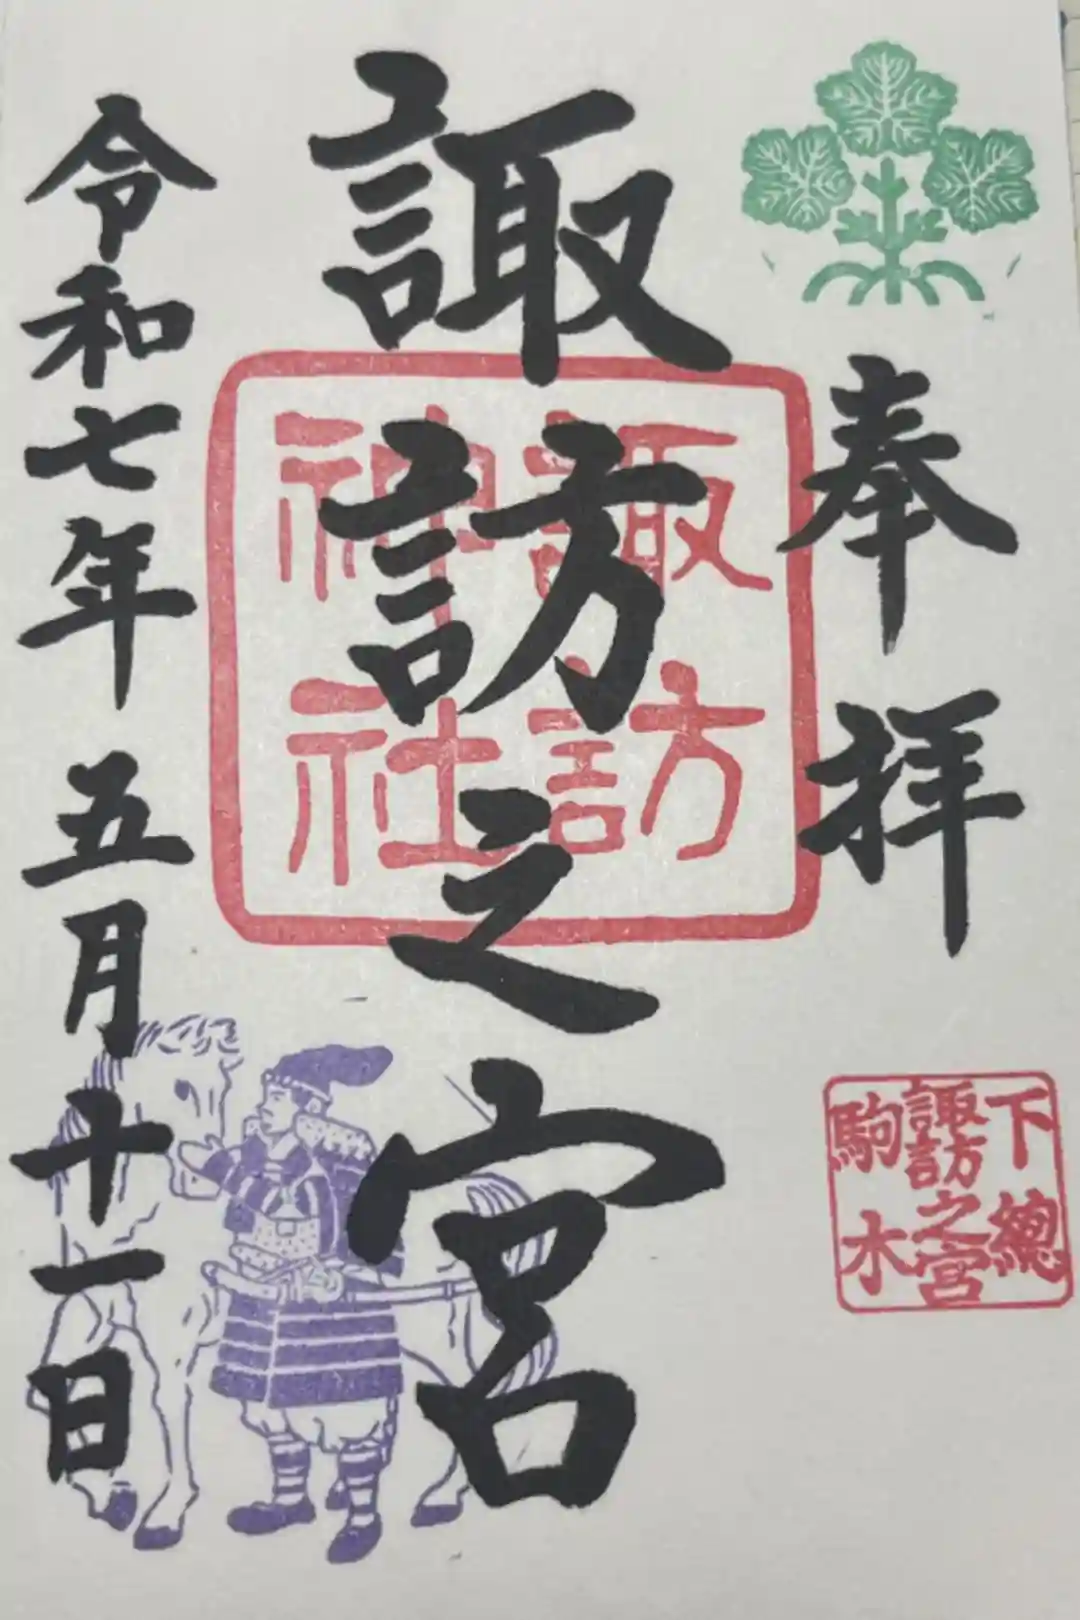 奉拝
下總
諏訪之宮
駒木
諏訪之宮
諏訪
神社
令和七年五月十一日